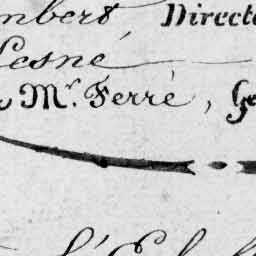 mbert Directe
Lesné
Mr. Ferré, Ge
l'Ech